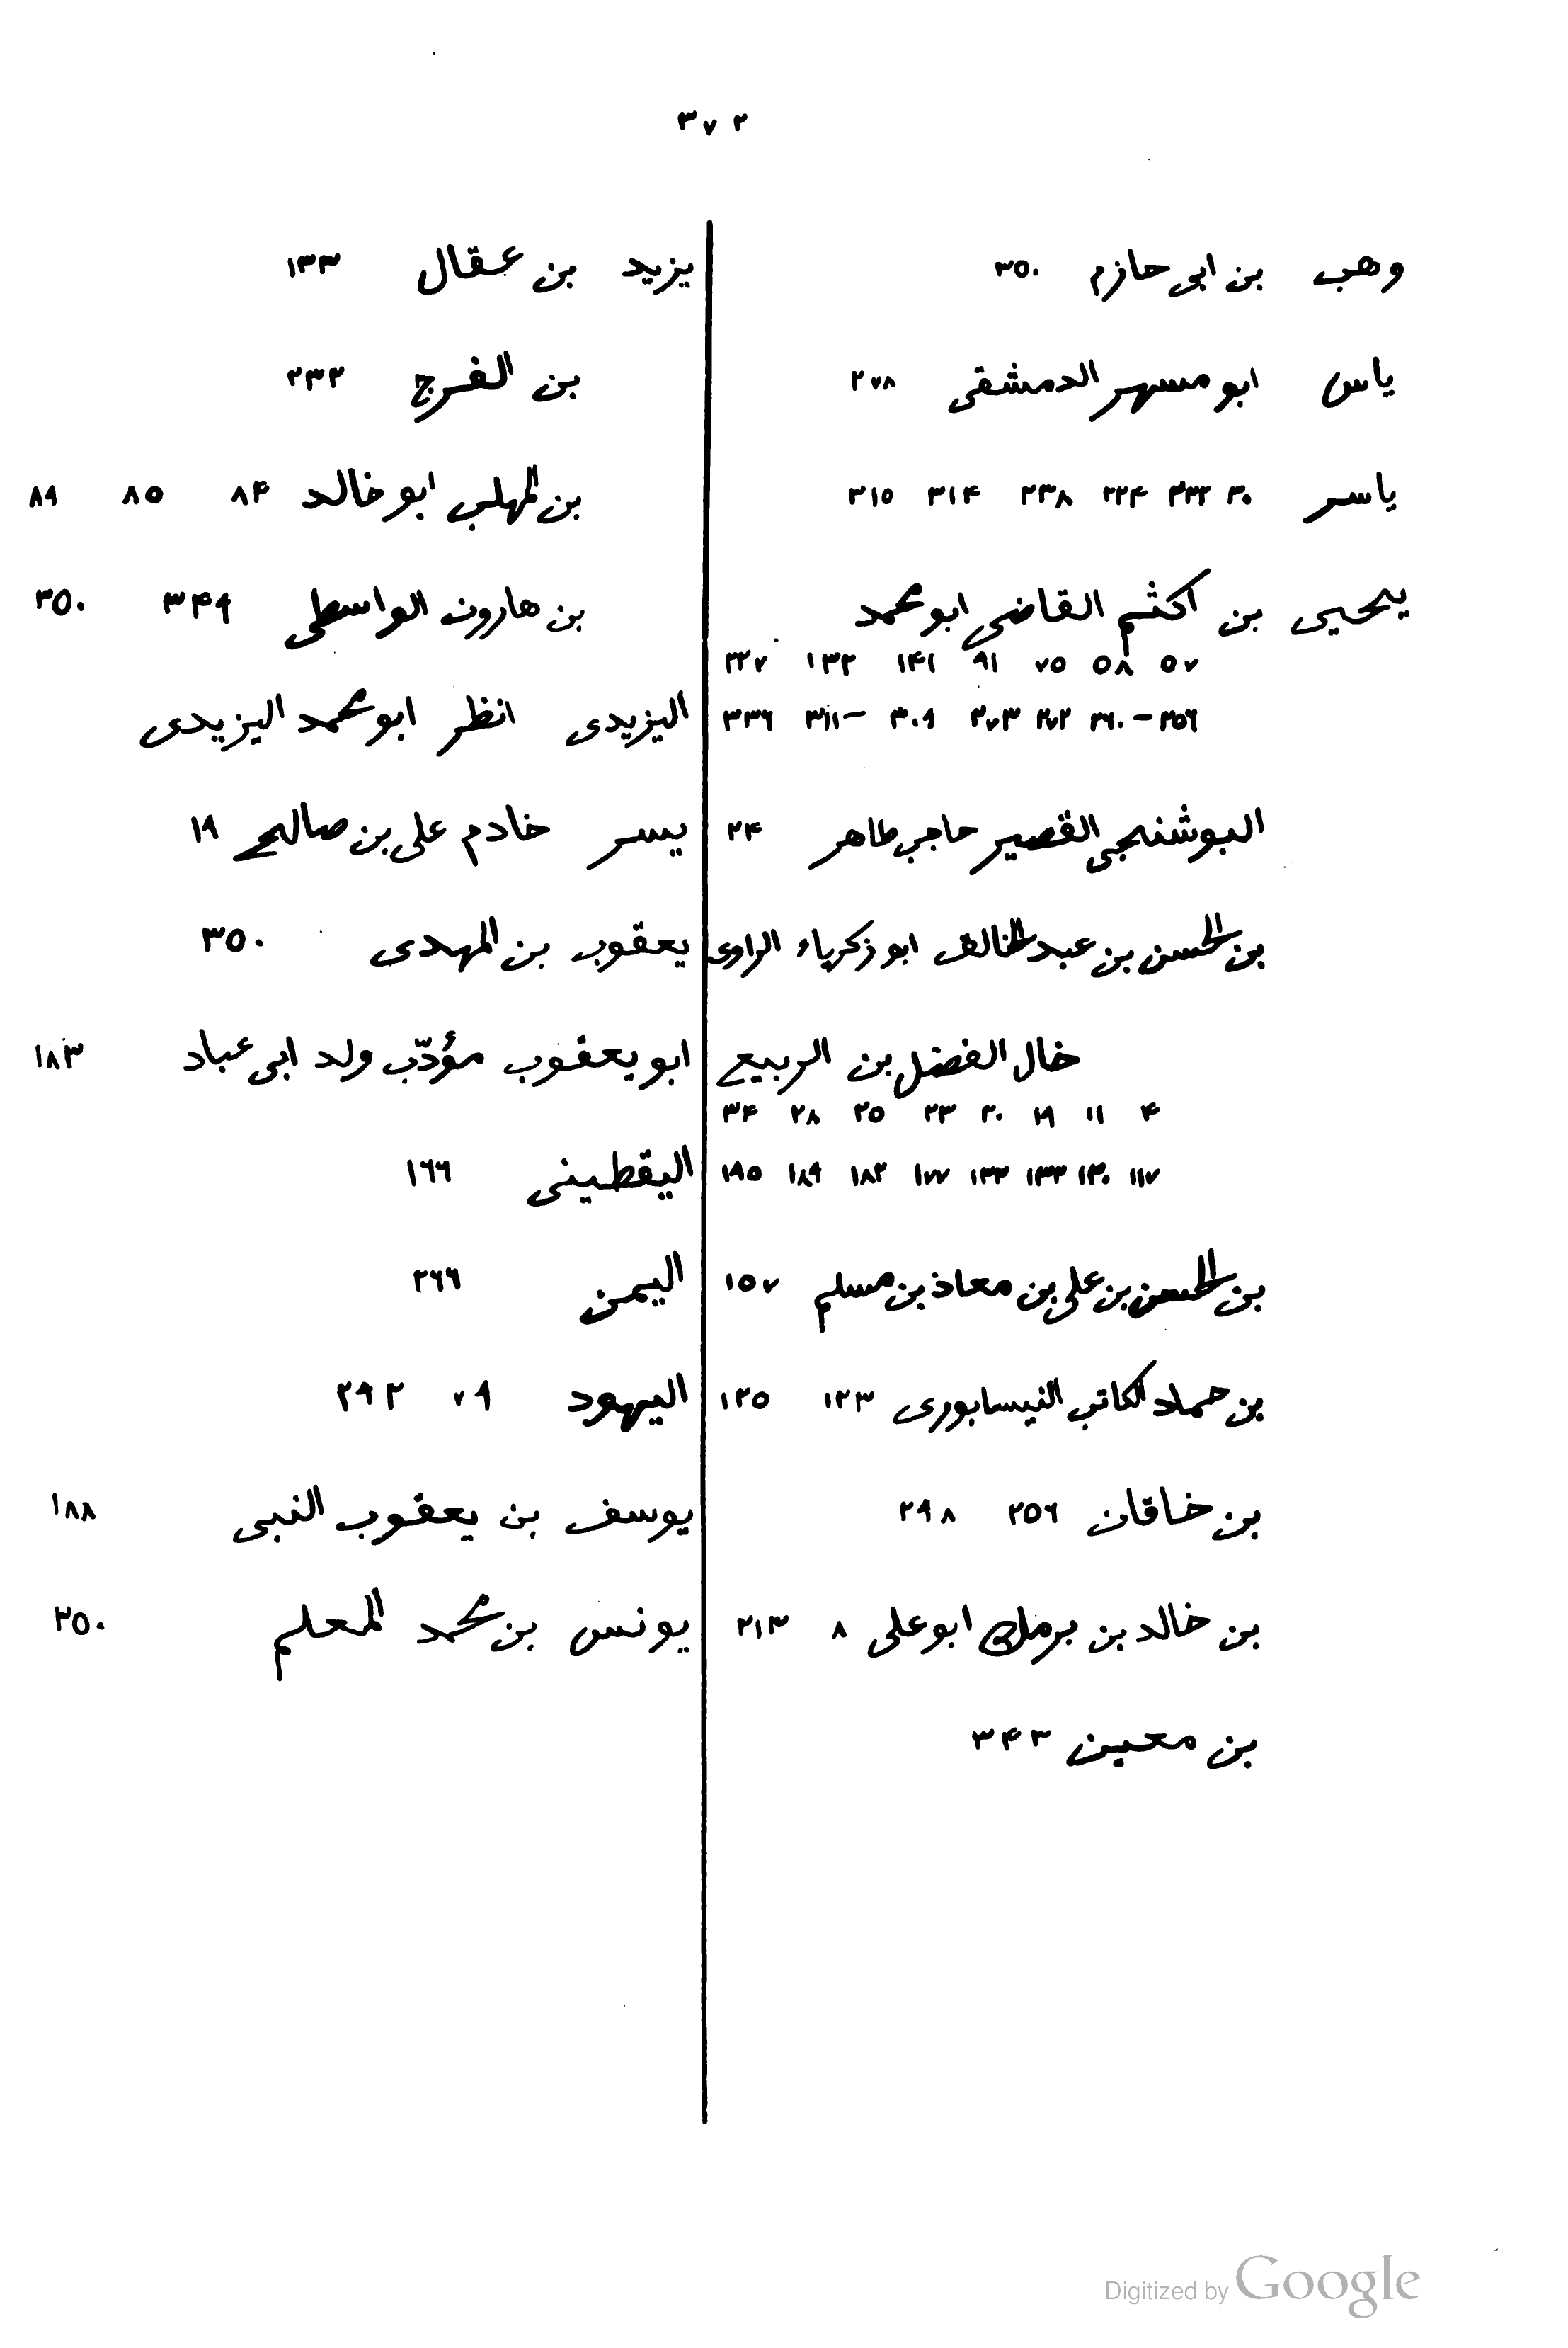 ٣٧٢
وهب بن ابى حازم ٣٥٠
ياس ابو مسهر الدمشقى ٢٧٨
ياسر ٣٠ ٢٣٣ ٢٣٤ ٢٣٨ ٣١٤ ٣١٥
يحيى بن اكثم القاضى ابو محمد
٥٧ ٥٨ ٧٥ ٩١ ١٤١ ١٣٢
٢٥٦-٢٦٠ ٢٧٢ ٢٧٣ ٣٠٩-٣١١ ٣٣٦
البوشنجى القصير حاجب طاهر ٢٤
بن الحسن بن عبد الخالق ابو زكرياء الراوى
خال الفضل بن الربيع
٤ ١١ ١٩ ٢٠ ٢٣ ٢٥ ٢٨ ٣٤
١١٧ ١٣٠ ١٣٣ ١٧٧ ١٨٢ ١٨٩ ١٩٥
بن الحسن بن على بن معاذ بن مسلم ١٥٧
بن حماد الكاتب النيسابورى ١٢٣ ١٢٥
بن خاقان ٢٥٦ ٢٩٨
بن خالد بن برمك ابو على ٨ ٢١٣
بن معين ٣٤٣
يزيد بن عقال ١٣٣
بن الفرج ٢٣٢
بن المهلب ابو خالد ٨٤ ٨٥ ٨٩
بن هارون الواسطى ٣٤٩ ٣٥٠
اليزيدى انظر ابو محمد اليزيدى
يسر خادم على بن صالح ١٩
يعقوب بن المهدى ٣٥٠
ابو يعقوب مؤدّب ولد ابى عباد ١٨٣
اليقطينى ١٦٦
اليمن ٢٦٦
اليهود ٧٩ ٢٩٢
يوسف بن يعقوب النبى ١٨٨
يونس بن محمد المعلم ٣٥٠
Digitized by Google